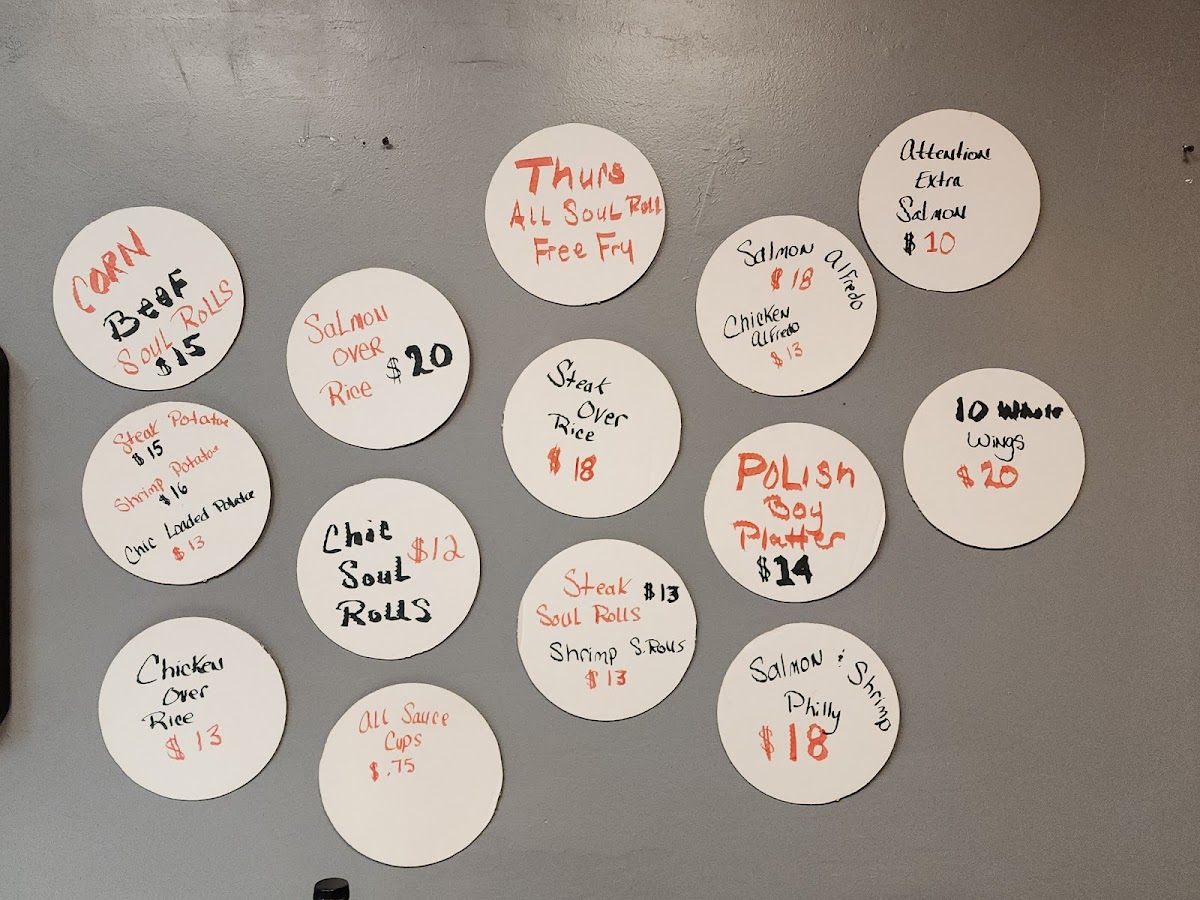 CORN
BEEF
SOUL ROLLS
$15
Steak Potatoe
$15
Shrimp Potatoe
$16
Chic Loaded Potatoe
$13
Chicken
Over
Rice
$13
Salmon
over
Rice $20
Chic $12
Soul
Rolls
All Sauce
Cups
$.75
Thurs
All Soul Roll
Free Fry
Steak
Over
Rice
$18
Steak $13
Soul Rolls
Shrimp S.Rolls
$13
Salmon Alfredo
$18
Chicken
Alfredo
$13
POLISH
Boy
Platter
$14
Salmon & Shrimp
Philly
$18
Attention
Extra
Salmon
$10
10 Whole
Wings
$20